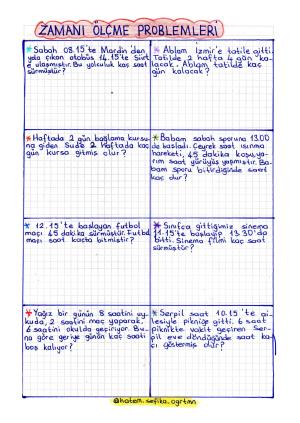 ZAMANI ÖLÇME PROBLEMLERİ
* Sabah 08.15'te Mardin'den
yola çıkan otobüs 14.15'te Siirt'
e ulaşmıştır. Bu yolculuk kaç saat
sürmüştür?
* Ablam İzmir'e tatile gitti.
Tatilde 2 hafta 4 gün ka-
lacak. Ablam tatilde kaç
gün kalacak?
* Haftada 2 gün bağlama kursu-
na giden Sude 2 haftada kaç
gün kursa gitmiş olur?
* Babam sabah sporuna 13.00
de başladı. Çeyrek saat ısınma
hareketi, 45 dakika koşu, ya-
rım saat yürüyüş yapmış. Ba-
bam sporu bitirdiğinde saat
kaç olur?
* 12.15'te başlayan futbol
maçı 45 dakika sürmüştür. Futbol
maçı saat kaçta bitmiştir?
* Sınıfça gittiğimiz sinema
11.15'te başlayıp 13.30'da
bitti. Sinema filmi kaç saat
sürmüştür?
* Yağız bir günün 8 saatini uy-
kuda, 2 saatini maç yaparak,
6 saatini okulda geçiriyor. Bu-
na göre geriye günün kaç saati
boş kalıyor?
* Serpil saat 10.15'te ai-
lesiyle pikniğe gitti. 6 saat
piknikte vakit geçiren Ser-
pil eve döndüğünde saat ka-
çı göstermiş olur?
@hatem.sefika.ogrtmn